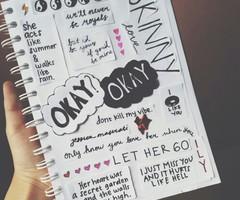 she
acts
like
summer
& walks
like
rain.
we'll never
be royals
SKINNY
love
OKAY?
OKAY
don't kill my vibe.
I
LIKE
YOU
only know you love her when
LET HER GO
ILY
Her heart was
a secret garden
and the walls
high.
I JUST MISS YOU
AND IT HURTS
LIKE HELL